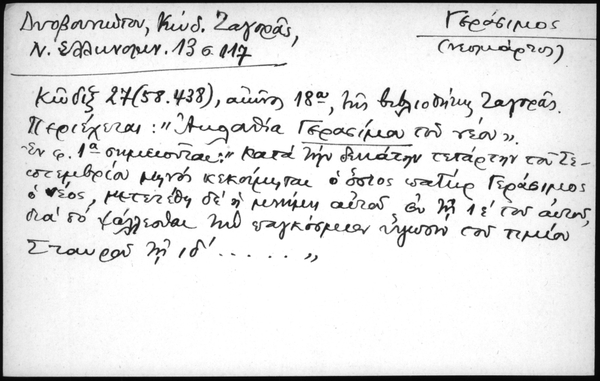 Δυοβουνιώτου, Κώδ. Ζαγορᾶς,
Ν. Ἑλληνομν. 13 σ 117
Γεράσιμος
(νεομάρτυς)
Κῶδιξ 27 (58.438), αἰῶνος 18ου, τῆς βιβλιοθήκης Ζαγορᾶς.
Περιέχεται: "Ἀκολουθία Γερασίμου τοῦ νέου".
Ἐν φ. 1α σημειοῦται: "Κατὰ τὴν δεκάτην τετάρτην τοῦ Σε-
πτεμβρίου μηνὸς κεκοίμηται ὁ ὅσιος πατὴρ Γεράσιμος
ὁ νέος, μετετέθη δὲ ἡ μνήμη αὐτοῦ ἐν τῇ ιε΄ τοῦ αὐτοῦ,
διὰ τὸ ψάλλεσθαι τὴν παγκόσμιον ὕψωσιν τοῦ τιμίου
Σταυροῦ τῇ ιδ΄ . . . . . "